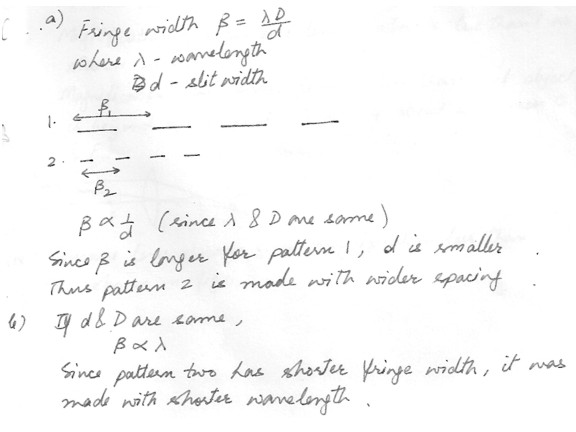 a) Fringe width β = λD/d
where λ - wavelength
d - slit width
1. β₁
2. β₂
β α 1/d (since λ & D are same)
Since β is longer for pattern 1, d is smaller.
Thus pattern 2 is made with wider spacing.
b) If d & D are same,
β α λ
Since pattern two has shorter fringe width, it was
made with shorter wavelength.